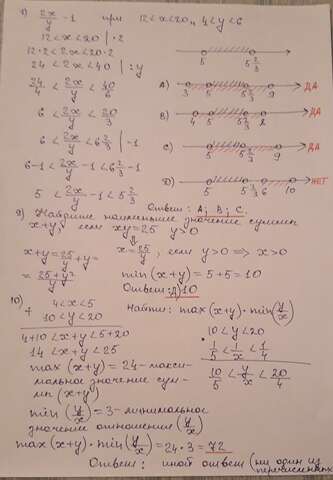 8) 2x/y - 1 при 12<x<20, 4<y<6
12<x<20 | ·2
12·2<2x<20·2
24<2x<40 | :y
24/4 < 2x/y < 40/6
6 < 2x/y < 20/3
6 < 2x/y < 6 2/3 | -1
6-1 < 2x/y - 1 < 6 2/3 - 1
5 < 2x/y - 1 < 5 2/3
5 5 2/3
A) 3 5 5 2/3 9 ДА
B) 4 5 5 2/3 8 ДА
C) 5 5 2/3 9 ДА
D) 5 5 2/3 6 10 НЕТ
Ответ: A; B; C.
9) Найдите наименьшее значение суммы
x+y, если xy=25 y>0
x+y = 25/y + y =
x = 25/y, если y>0 ⇒ x>0
= 25+y²/y
min(x+y) = 5+5 = 10
Ответ: D) 10
10) + 4<x<5
10<y<20
4+10<x+y<5+20
14<x+y<25
max(x+y)=24-макси-
мальное значение сум-
мы (x+y)
Найти: max(x+y)·min(y/x)
10<y<20
1/5 < 1/x < 1/4
10/5 < y/x < 20/4
min(y/x)=3-минимальное
значение отношения (y/x)
max(x+y)·min(y/x)=24·3=72
Ответ: иной ответ (ни один из
перечисленных